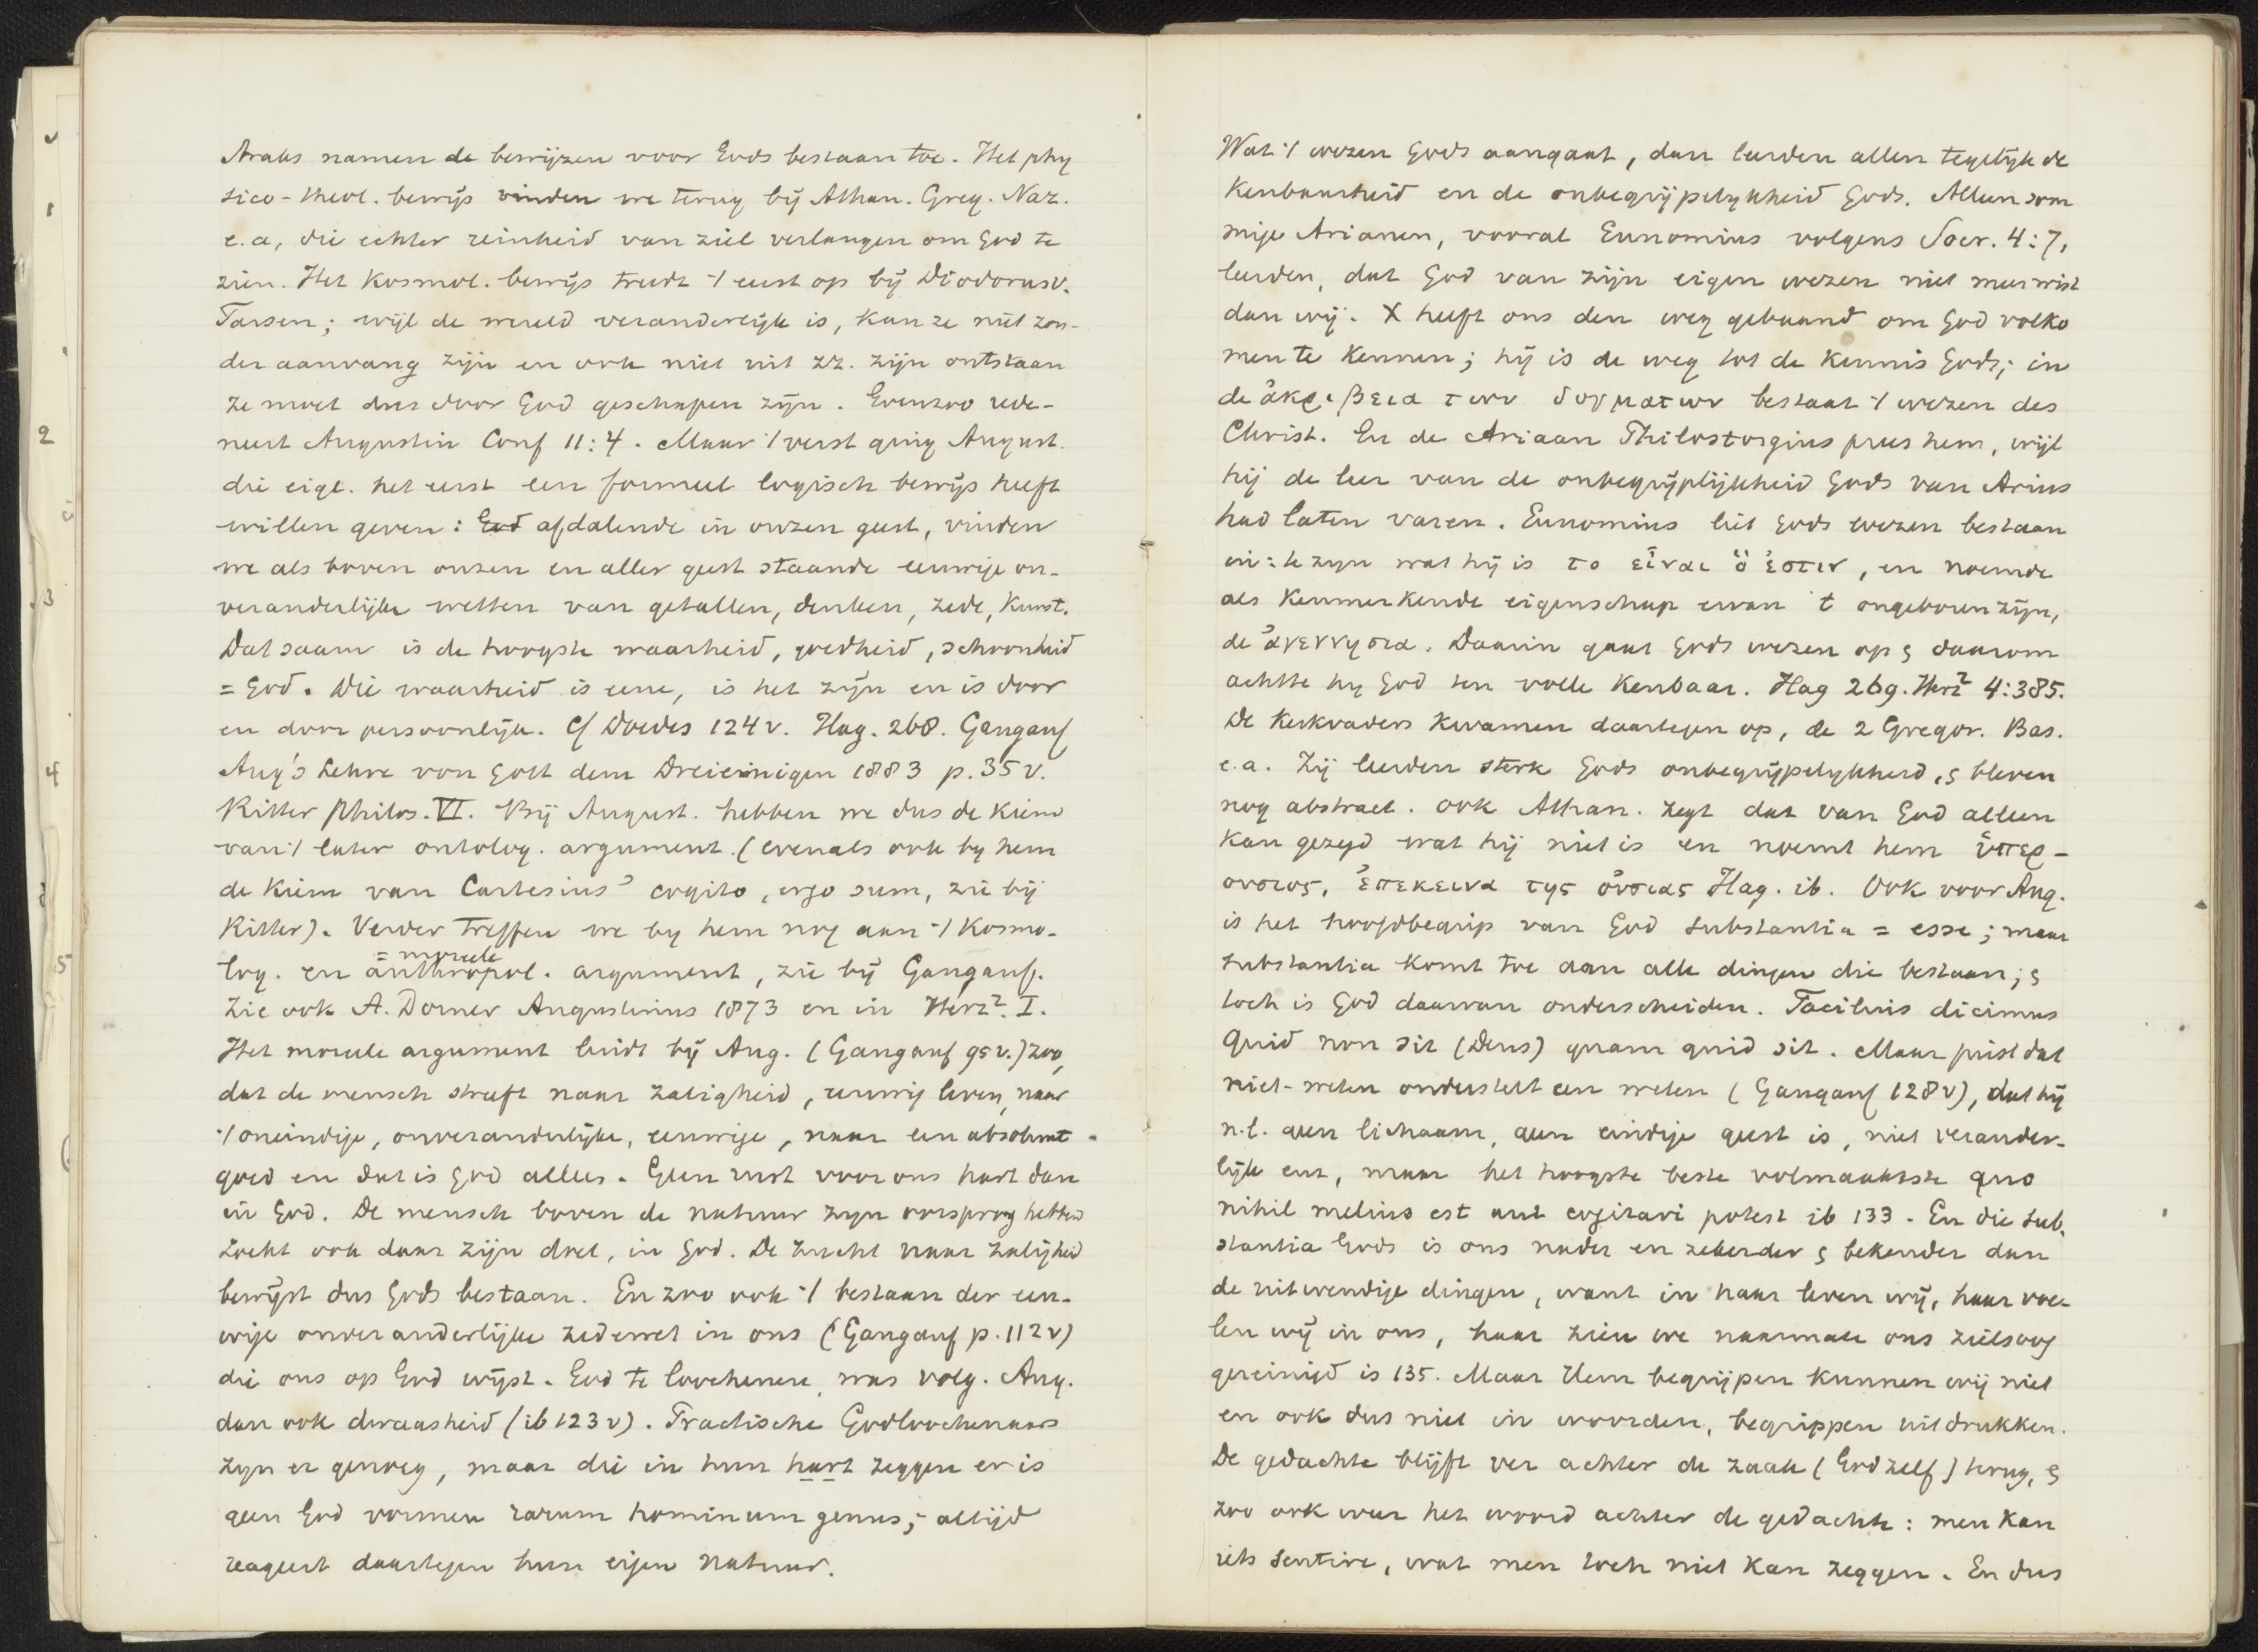 Arabs namen de bewijzen voor Gods bestaan toe. Het phy
sico-theol. bewijs vinden we terug bij Athan. Greg. Naz.
e.a, die echter reinheid van ziel verlangen om God te
zien. Het Kosmol. bewijs treedt 't eerst op bij Diodorus v.
Tarsen; wijl de wereld veranderlijk is, kan ze niet zon-
der aanvang zijn en ook niet uit zz. zijn ontstaan
ze moet dus door God geschapen zijn. Evenzoo rede-
neert Augustin Conf 11:4. Maar 't verst ging August.
die eigl. het eerst een formeel logisch bewijs heeft
willen geven: God afdalende in onzen geest, vinden
we als boven onzen en aller geest staande eeuwige on-
veranderlijke wetten van getallen, denken, zede, Kunst.
Dat saam is de hoogste waarheid, goedheid, schoonheid
= God. Die waarheid is eene, is het zijn en is door
en door persoonlijk. Cf Doedes 124 v. Hag. 268. Gangauf
Aug's Lehre von Gott dem Dreieinigen 1883 p. 35 v.
Ritter Philos. VI. Bij August. hebben we dus de kiem
van 't later ontolog. argument. (evenals ook by hem
de kiem van Cartesius' cogito, ergo sum, zie bij
Ritter). Verder treffen we by hem nog aan 't Kosmo-
= moreele
log. en anthropol. argument, zie bij Gangauf.
Zie ook A. Dorner Augustinus 1873 en in Herz². I.
Het moreele argument luidt bij Aug. (Gangauf 95 v.) zoo,
dat de mensch streeft naar zaligheid, eeuwig leven, naar
't oneindige, onveranderlijke, eeuwige, naar een absoluut
goed en dat is God alleen. Geen rust voor ons hart dan
in God. De mensch boven de natuur zijn oorsprong hebbend
zoekt ook daar zijn doel, in God. De zucht naar zaligheid
bewijst dus Gods bestaan. En zoo ook 't bestaan der eeu-
wige onveranderlijke zedewet in ons (Gangauf p. 112 v)
die ons op God wijst. God te loochenen, was volg. Aug.
dan ook dwaasheid (ib 123 v). Practische Godloochenaars
zyn er genoeg, maar die in hun hart zeggen er is
geen God vormen rarum hominum genus; altijd
reageert daartegen hun eigen natuur.
Wat 't wezen Gods aangaat, dan leerden allen tegelijk de
Kenbaarheid en de onbegrijpelykheid Gods. Alleen som
mige Arianen, vooral Eunomius volgens Socr. 4:7,
leerden, dat God van zijn eigen wezen niet meer wist
dan wij. X heeft ons den weg gebaand om God volko
men te Kennen; hij is de weg tot de Kennis Gods; in
de ἀκριβεια των δογματων bestaat 't wezen des
Christ. En de Ariaan Philostorgius prees hem, wijl
hij de leer van de onbegrijplijkheid Gods van Arius
had laten varen. Eunomius liet Gods wezen bestaan
in: te zijn wat hij is το εἶναι ὅ ἐστιν, en noemde
als Kenmerkende eigenschap ervan 't ongeboren zijn,
de ἀγεννησια. Daarin gaat Gods wezen op & daarom
achtte hy God ten volle Kenbaar. Hag 269. Herz² 4:385.
De Kerkvaders Kwamen daartegen op, de 2 Gregor. Bas.
e.a. Zij leerden sterk Gods onbegrijpelykheid, & bleven
nog abstract. Ook Athan. zegt dat van God alleen
kan gezegd wat hij niet is en noemt hem ὑπερ-
ουσιος, ἐπεκεινα της οὐσιας Hag. ib. Ook voor Aug.
is het hoofdbegrip van God substantia = esse; maar
substantia komt toe aan alle dingen die bestaan; &
toch is God daarvan onderscheiden. Facilius dicimus
quid non sit (Deus) quam quid sit. Maar juist dat
niet-weten onderstelt een weten (Gangauf 128 v), dat hij
n.l. geen lichaam, geen eindige geest is, niet verander-
lijk enz, maar het hoogste beste volmaaktste quo
nihil melius est aut cogitari potest ib 133. En die sub-
stantia Gods is ons nader en zekerder & bekender dan
de uitwendige dingen, want in haar leven wij, haar voe-
len wij in ons, haar zien we naarmate ons zielsoog
gereinigd is 135. Maar Hem begrijpen kunnen wij niet
en ook dus niet in woorden, begrippen uitdrukken.
De gedachte blijft ver achter de zaak (God zelf) terug, &
zoo ook weer het woord achter de gedachte: men kan
iets sentire, wat men toch niet kan zeggen. En dus